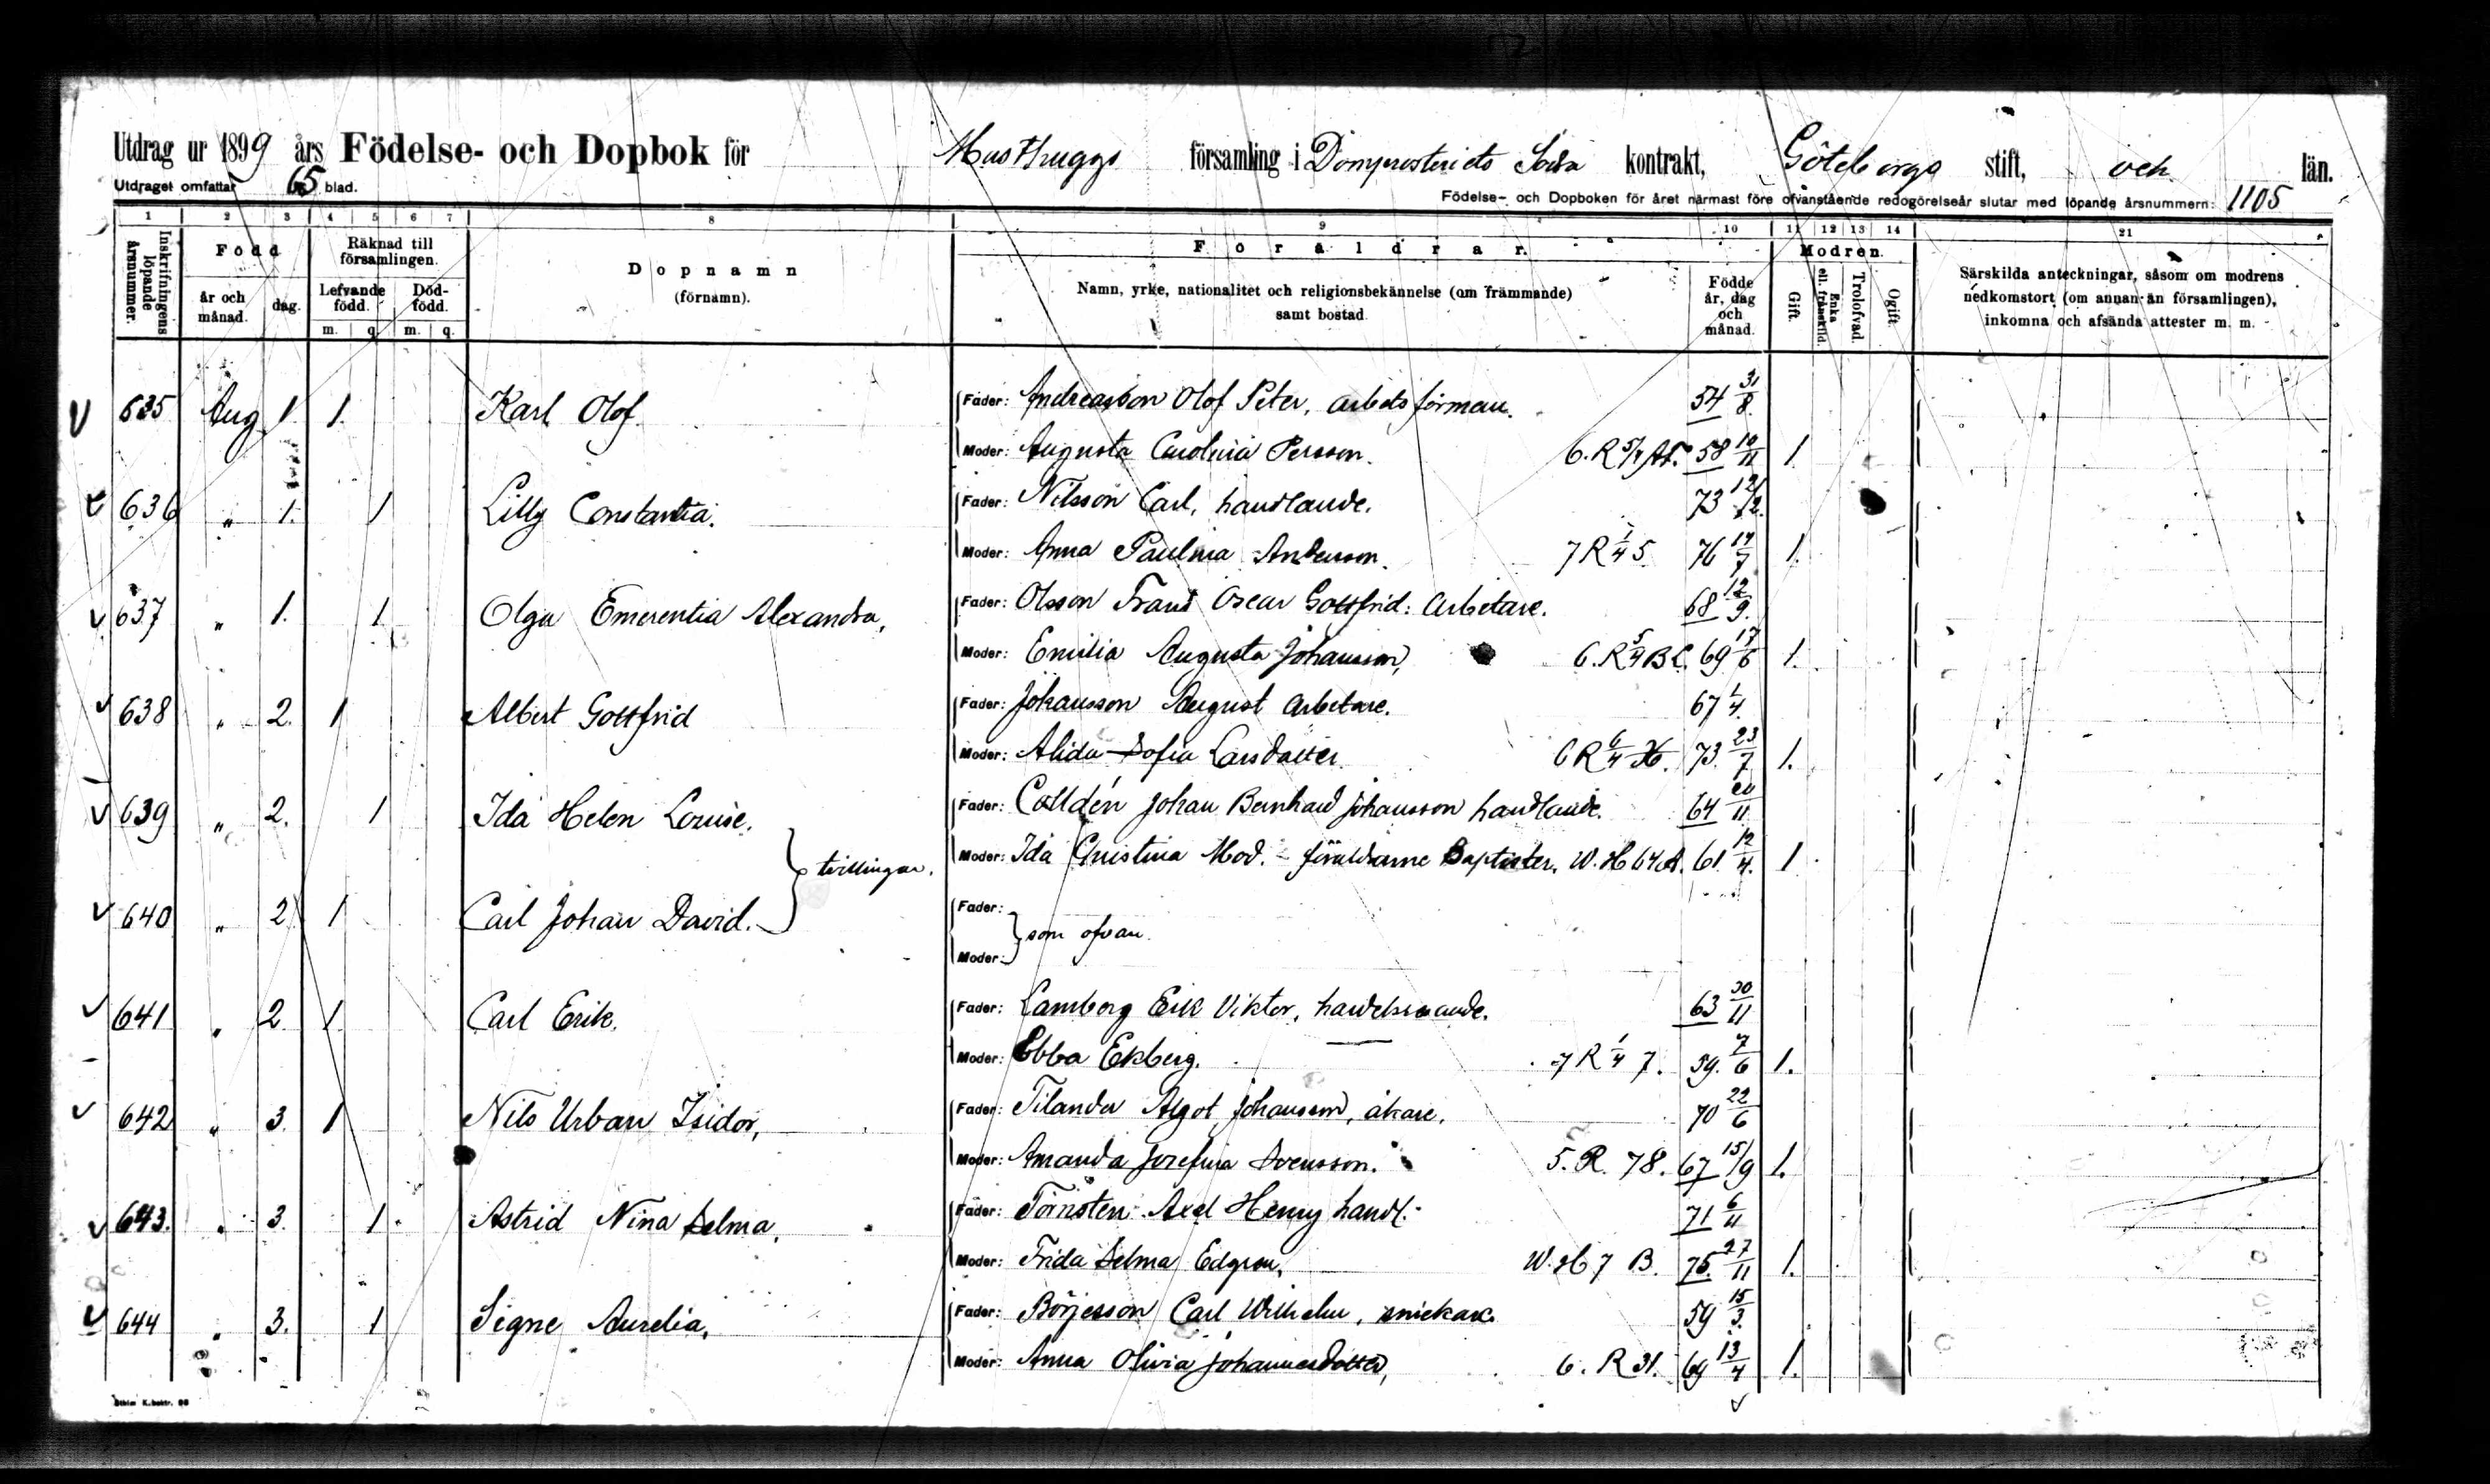 Utdrag ur 1899 års Födelse- och Dopbok för Masthuggs församling i Domprosteriets Södra kontrakt, Göteborgs stift, och län.
Utdraget omfattar 65 blad.
Födelse- och Dopboken för året närmast före ofvanstående redogörelseår slutar med löpande årsnummern: 1105
1 2 3 4 5 6 7 8 9 10 11 12 13 14 21
Inskrifningens löpande årsnummer.
Född
år och månad.
dag.
Räknad till församlingen.
Lefvande född.
Död-född.
m. q. m. q.
Dopnamn
(förnamn).
Föräldrar.
Namn, yrke, nationalitet och religionsbekännelse (om främmande)
samt bostad
Födde år, dag och månad.
Modren.
Gift.
Enka ell. frånskild.
Trolofvad.
Ogift.
Särskilda anteckningar, såsom om modrens
nedkomstort (om annan än församlingen),
inkomna och afsända attester m. m.
635 Aug 1. 1. Karl Olof. Fader: Andreasson Olof Peter, arbetsförman. 54 31/8.
Moder: Augusta Carolina Persson. 6. R 5/4 58 10/11 1.
636 " 1. 1 Lilly Constantia. Fader: Nilsson Carl, handlande. 73 12/12.
Moder: Anna Paulina Andersson. 7 R 1/4 5. 76 14/7 1.
637 " 1. 1. Olga Emerentia Alexandra, Fader: Olsson Frans Oscar Gottfrid: Arbetare. 68 12/9.
Moder: Emilia Augusta Johansson, 6. R 5/4 B C. 69 17/6 1.
638 " 2. 1 Albert Gottfrid Fader: Johansson August Arbetare. 67 1/4.
Moder: Alida Sofia Larsdotter. 6 R 6/4 73. 23/7 1.
639 " 2. 1 Ida Helen Louise. Fader: Colldén Johan Bernhard Johansson handlande. 64 20/11
} tvillingar.
Moder: Ida Christina Mod. - föräldrarne Baptister. W. H 64 A. 61. 12/4. 1
640 " 2 1 Carl Johan David. Fader:
} som ofvan.
Moder:
641 " 2 1. Carl Erik. Fader: Lamberg Erik Viktor, handelsresande. 63 30/11
Moder: Ebba Ekberg. 7 R 1/4 7. 59. 7/6 1.
642 " 3. 1 Nils Urban Isidor, Fader: Tilander Algot Johansson, åkare. 70 22/6
Moder: Amanda Josefina Svensson. 5. R. 78. 67 15/9 1.
643. " 3. 1. Astrid Nina Selma, Fader: Törnsten Axel Henry handl. 71 6/11
Moder: Frida Selma Edgren, W. H 7 B. 75. 27/11 1.
644 " 3. 1 Signe Aurelia, Fader: Börjesson Carl Wilhelm, snickare. 59 15/3.
Moder: Anna Olivia Johannesdotter, 6. R 31. 69 13/4 1.
Sthlm K.boktr. 98